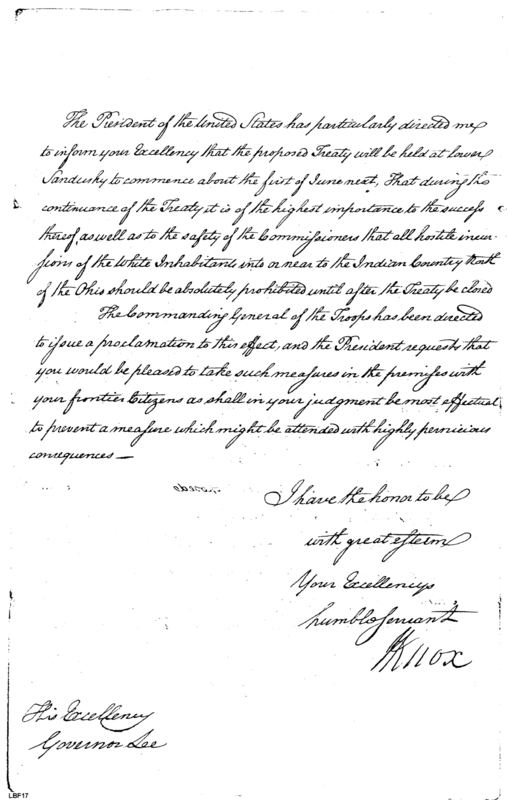 The President of the United States has particularly directed me
to inform your Excellency that the proposed Treaty will be held at lower
Sandusky to commence about the first of June next, That during the
continuance of the Treaty it is of the highest importance to the success
thereof, as well as to the safety of the Commissioners that all hostile incur-
sions of the White Inhabitants into or near to the Indian Country North
of the Ohio should be absolutely prohibited until after the Treaty be closed
The Commanding General of the Troops has been directed
to issue a proclamation to this effect, and the President requests that
you would be pleased to take such measures in the premises with
your frontier Citizens as shall in your judgment be most effectual
to prevent a measure which might be attended with highly pernicious
consequences —
I have the honor to be
with great esteem
Your Excellencys
humble servant
HKnox
His Excellency
Governor Lee
LBF17